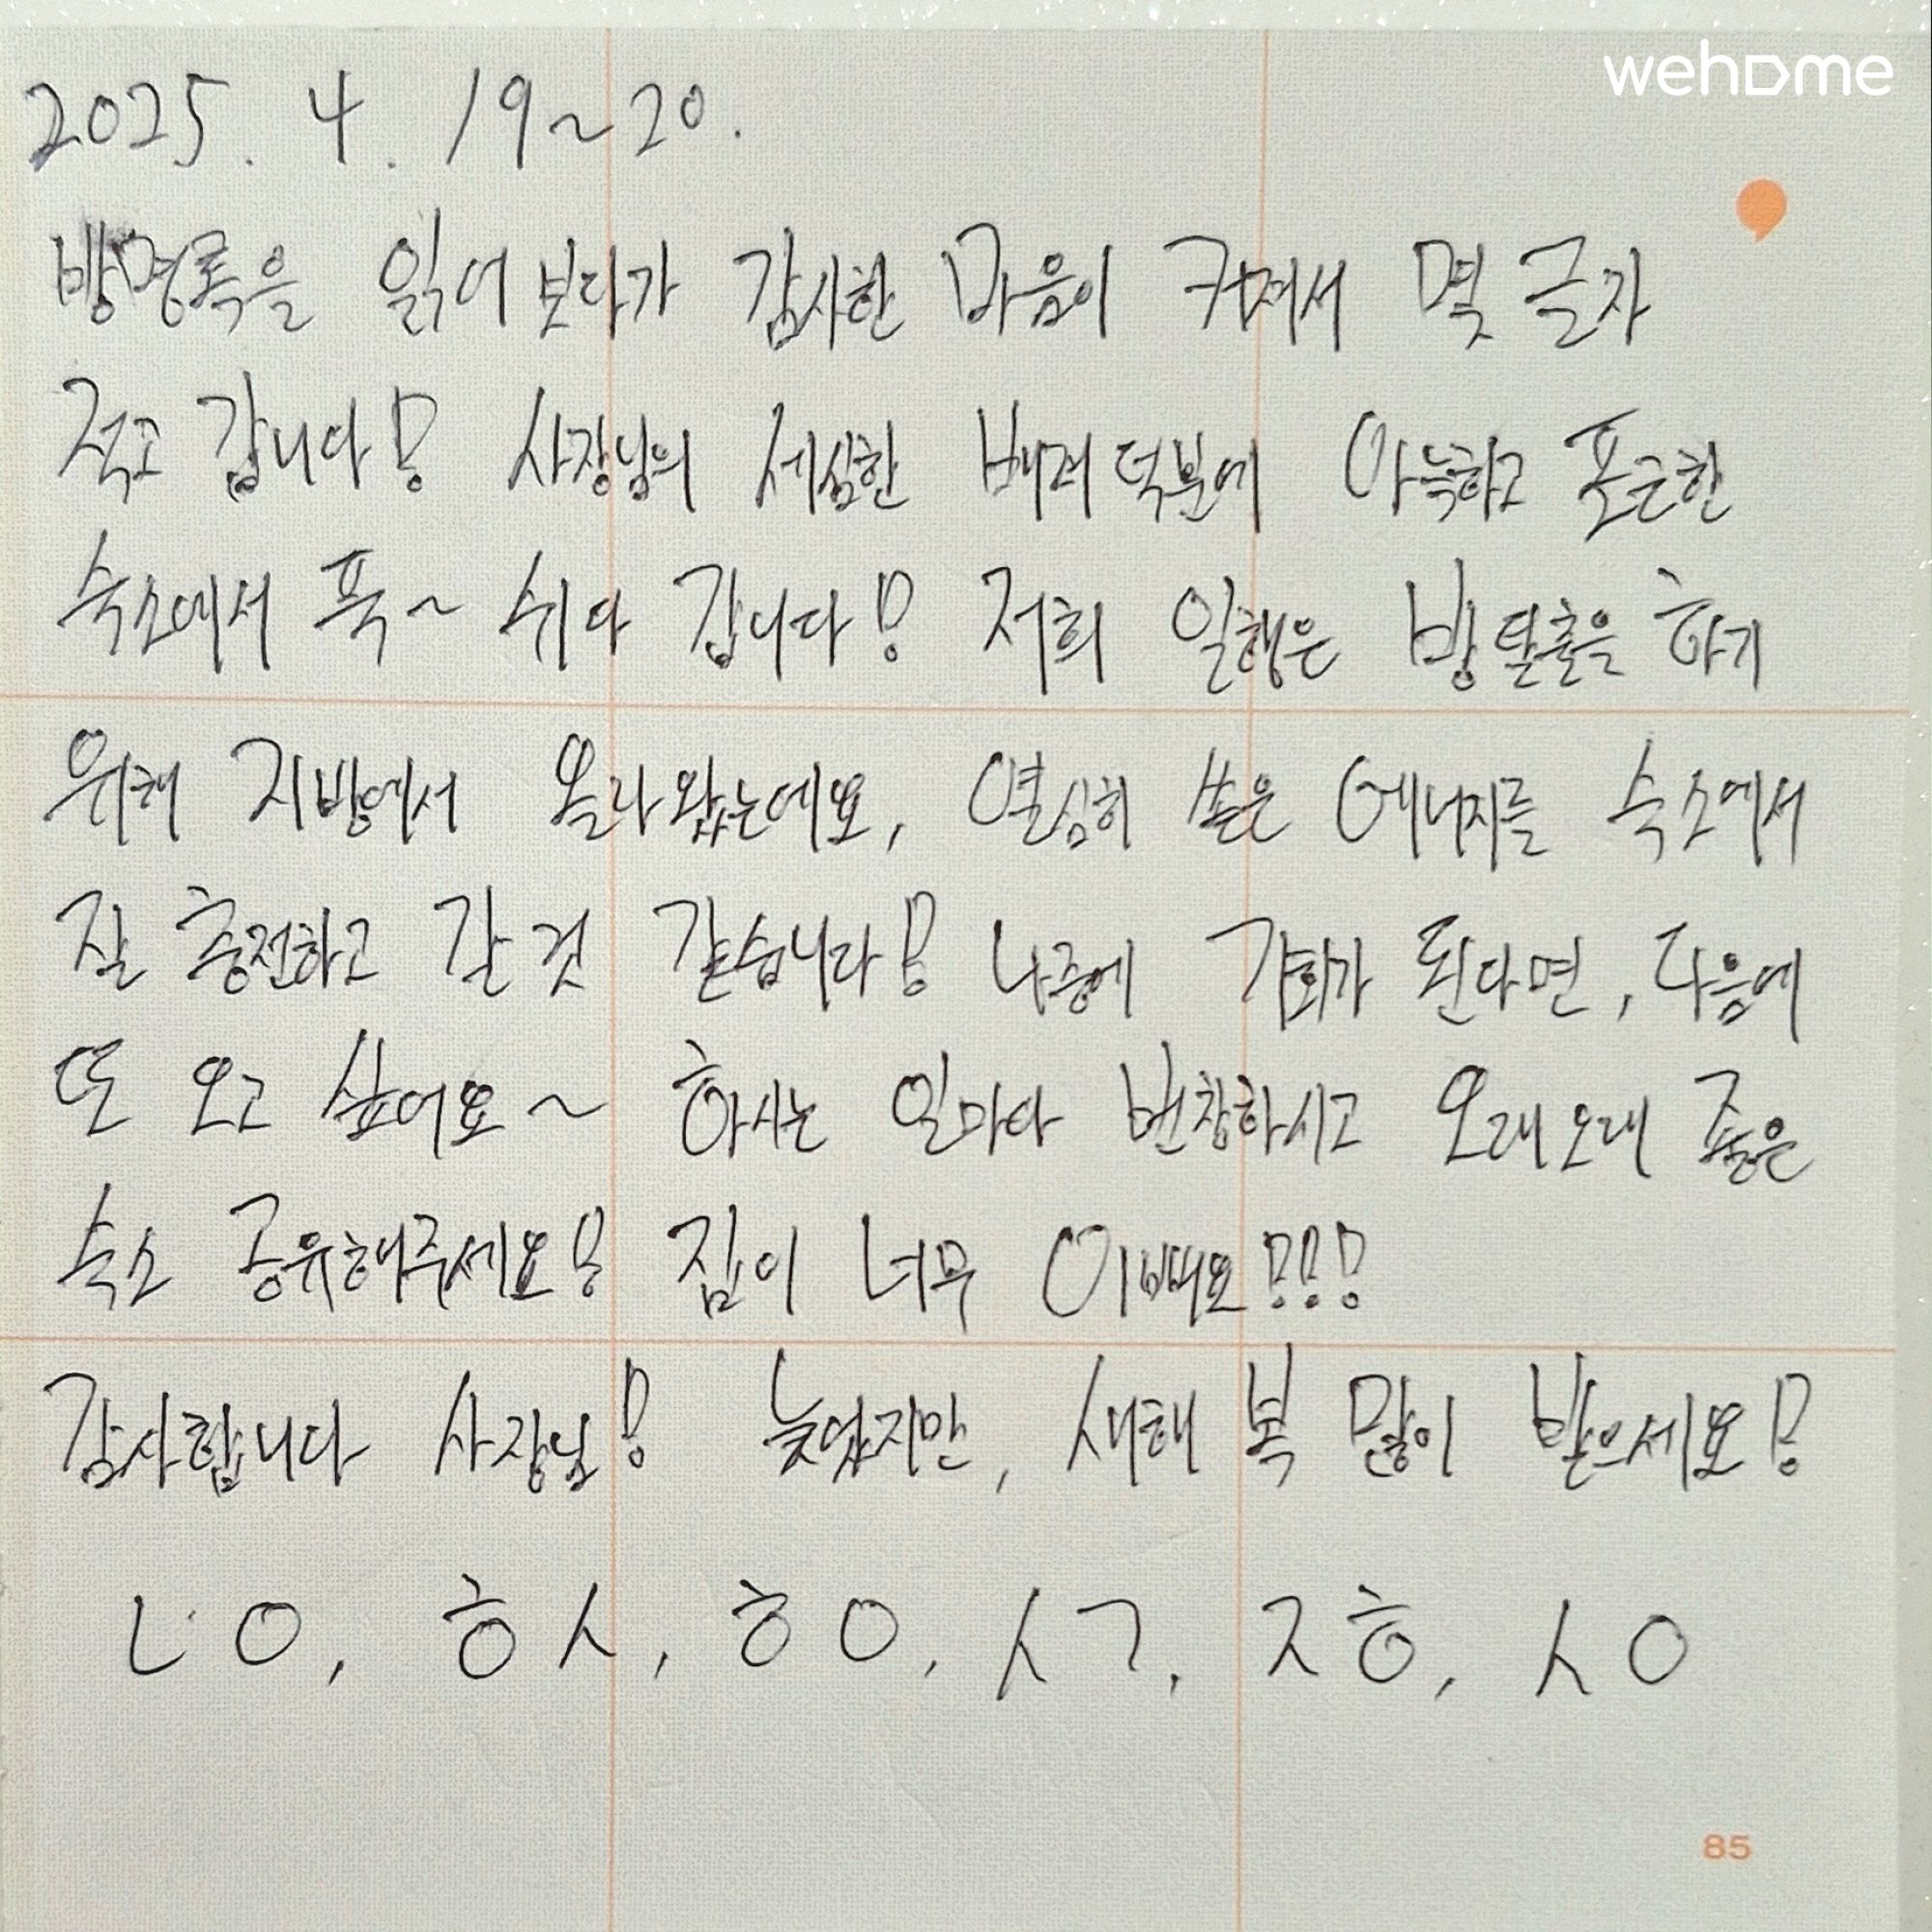 wehome
2025. 4. 19~20.
방명록을 읽어보다가 감사한 마음이 커져서 몇 글자
적고 갑니다! 사장님의 세심한 배려 덕분에 아늑하고 포근한
숙소에서 푹~ 쉬다 갑니다! 저희 일행은 방탈출을 하기
위해 지방에서 올라왔는데요, 열심히 쏟은 에너지를 숙소에서
잘 충전하고 갈 것 같습니다! 나중에 기회가 된다면, 다음에
또 오고 싶어요~ 하시는 일마다 번창하시고 오래오래 좋은
숙소 공유해주세요! 집이 너무 이뻐요!!!
감사합니다 사장님! 늦었지만, 새해 복 많이 받으세요!
ㄴㅇ, ㅎㅅ, ㅎㅇ, ㅅㄱ, ㅈㅎ, ㅅㅇ
85